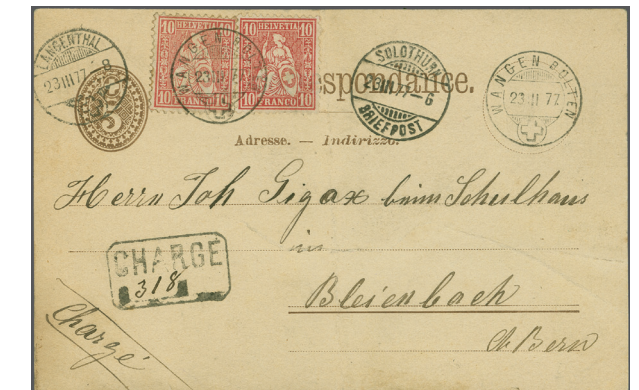 LANGENTHAL
23 III 77 8
5
10 HELVETIA 10
10 FRANCO 10
10 HELVETIA 10
10 FRANCO 10
WANGEN
23 II 7
spondance.
SOLOTHURN
23 III 77 – 6
BRIEFPOST
WANGEN B/OLTEN
23 II 77
Adresse. — Indirizzo.
Herrn Joh Gigax beim Schulhaus
in
CHARGÉ
318
Bleienbach
Chargé
Ct. Bern